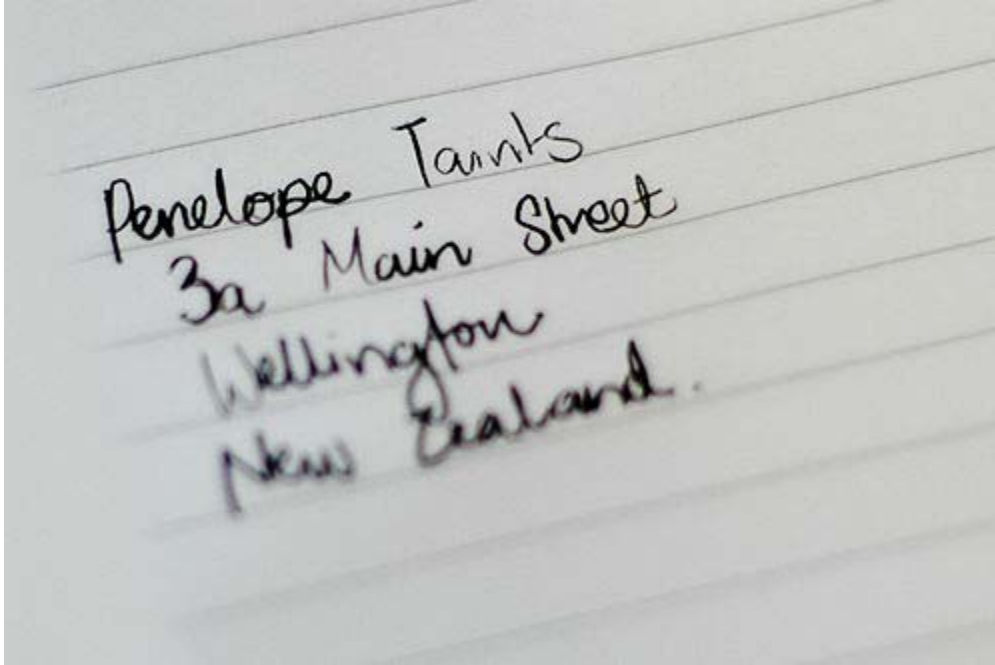 Penelope Taints
3a Main Street
Wellington
New Zealand.